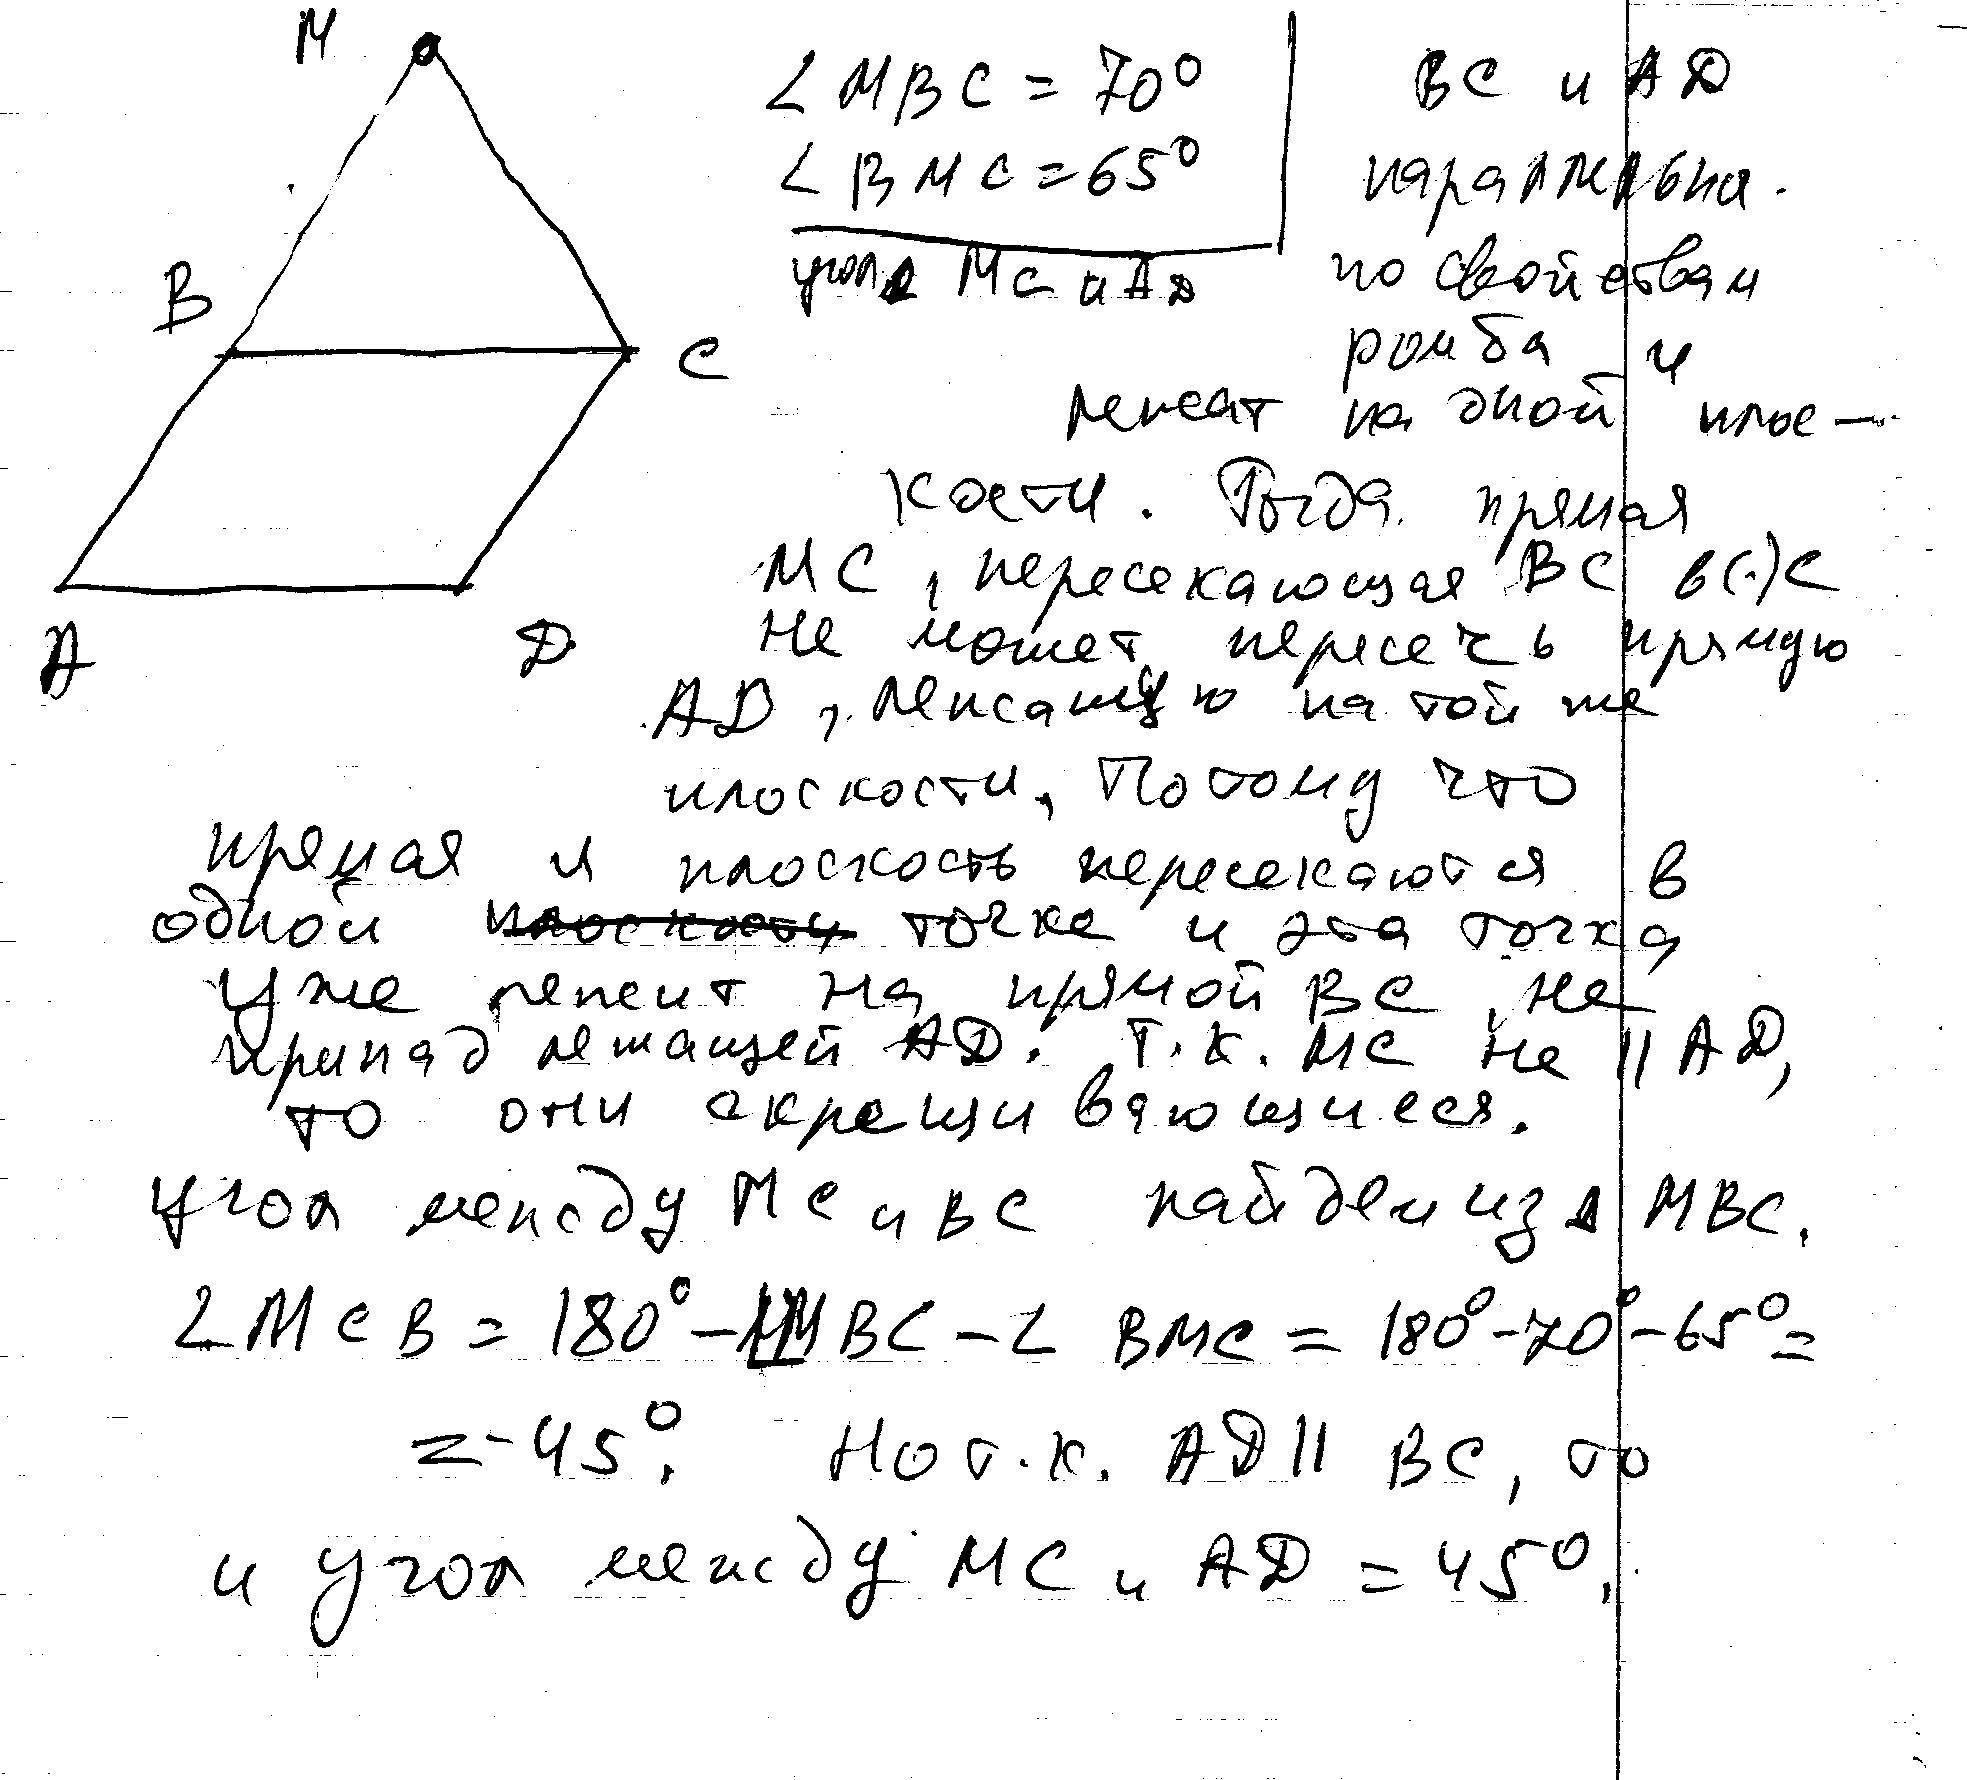 M
∠MBC = 70°
BC и AD
∠BMC = 65°
параллельна.
угол MC и AD
по свойствам
B
ромба и
C
лежат на дной плос-
кости. Тогда прямая
MC, пересекающая BC в (·) C
A
D
Не может пересечь прямую
AD, лежащую на той же
плоскости, Потому что
прямая и плоскость пересекаются в
одной точке и эта точка
уже лежит на прямой BC, не
принадлежащей AD. Т.к. MC не || AD,
то они скрещивающиеся.
угол между MC и BC найдем из Δ MBC.
∠MCB = 180° - ∠MBC - ∠BMC = 180° - 70° - 65° =
= 45°. Но т.к. AD || BC, то
и угол между MC и AD = 45°.